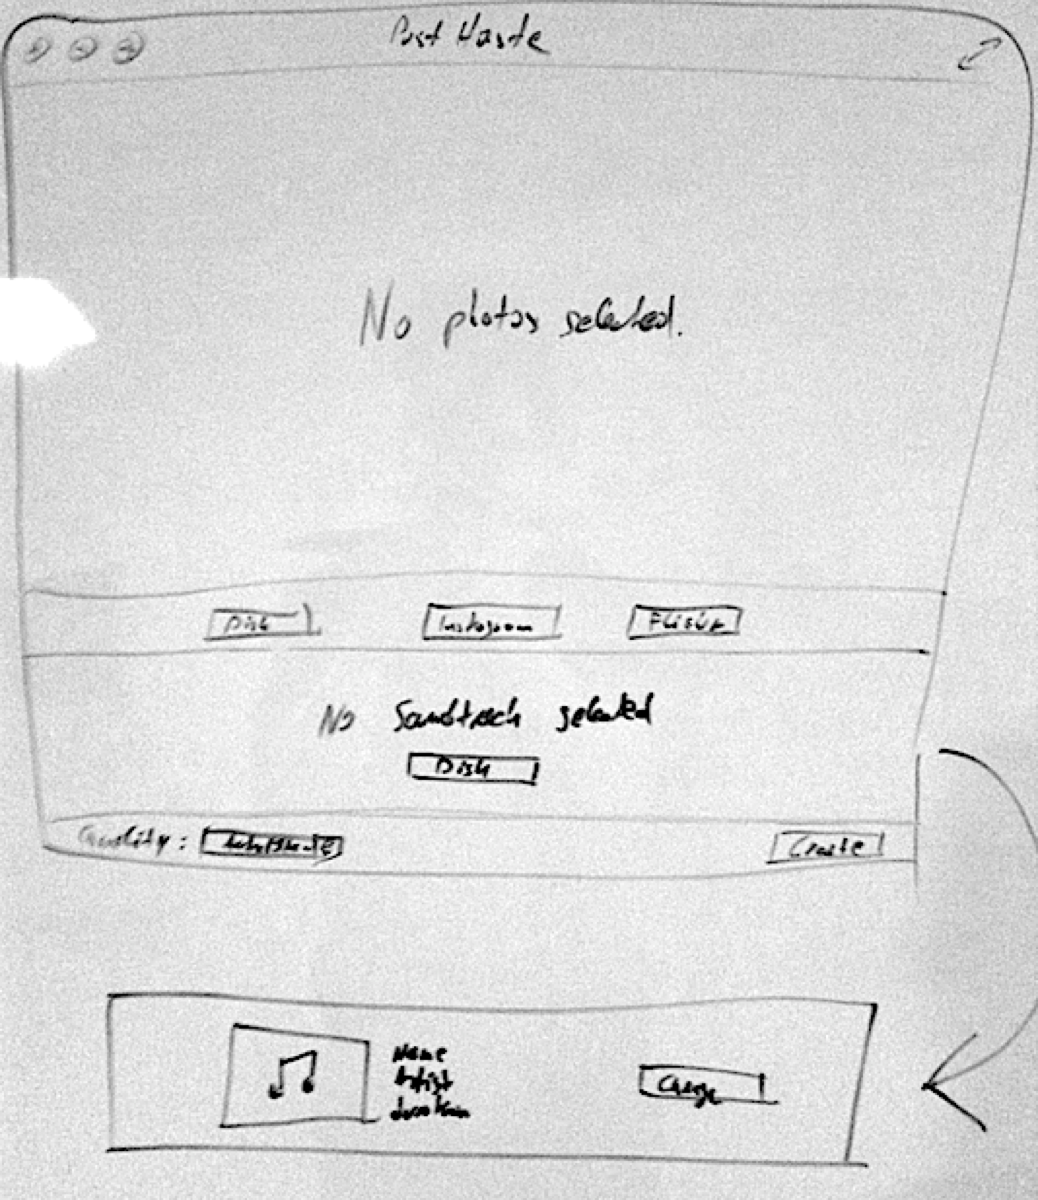 Post Haste
No photos selected.
Disk Instagram Flickr
No Soundtrack selected
Disk
Quality: Create
Name
Artist
duration
Change